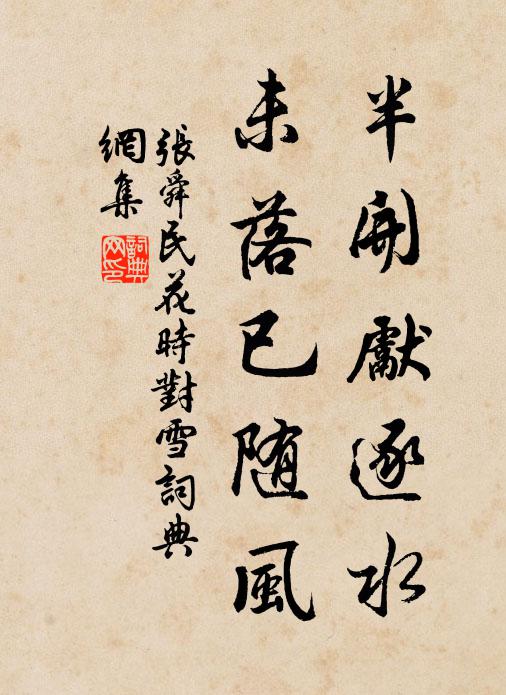 半開獻逐水
未落已随風
張舜民花時對雪詞典
網集
詞典
网印